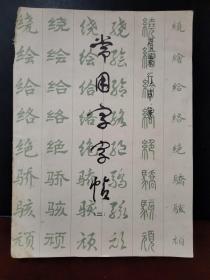 常用字字帖
二
绕 绕 绕 绕 繞 繞
绘 绘 绘 绘 繪 繪
给 给 给 给 給 給
络 络 络 络 絡 絡
绝 绝 绝 绝 絕 絕
骄 骄 骄 骄 驕 驕
骇 骇 骇 骇 駭 駭
顽 顽 顽 顽 頑 頑